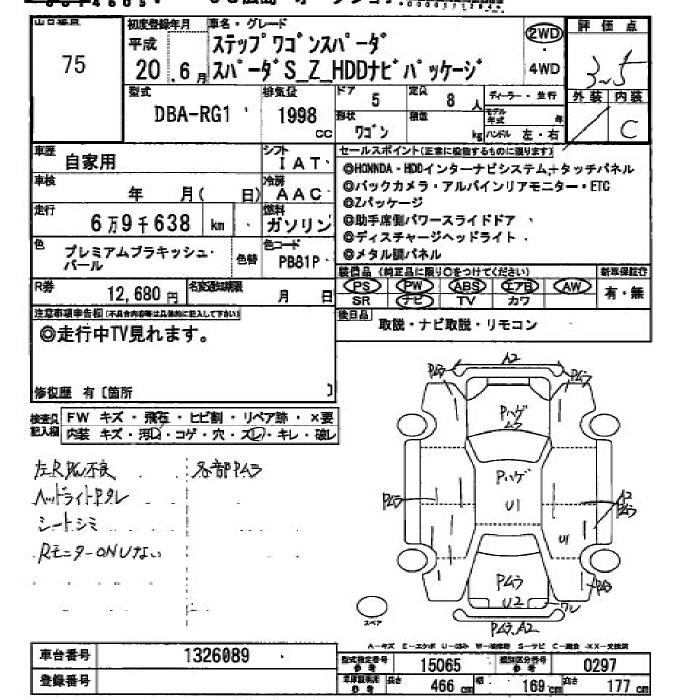 初度登録年月 車名・グレード
75
平成 20.6月
ステップワゴンスパーダ
スパーダS_Z_HDDナビパッケージ
2WD
4WD
評価点
3.5
外装 内装
C
型式 DBA-RG1
排気量 1998 cc
ドア 5
定員 8人
形状 ワゴン
積量 kg
ディーラー・並行
モデル年式 年
ハンドル 左・右
車歴 自家用
シフト IAT
車検 年 月( 日)
冷房 AAC
走行 6万9千638 km
燃料 ガソリン
色 プレミアムブラキッシュ・パール
色替
色コード PB81P
R券 12,680円
名変通知期限 月 日
セールスポイント(正常に機能するものに限ります)
◎HONNDA・HDDインターナビシステム+タッチパネル
◎バックカメラ・アルパインリアモニター・ETC
◎Zパッケージ
◎助手席側パワースライドドア
◎ディスチャージヘッドライト
◎メタル調パネル
装備品(純正品に限り○をつけてください)
新車保証書
PS PW ABS エアB AW 有・無
SR ナビ TV カワ
後日品 取説・ナビ取説・リモコン
注意事項申告欄(不具合内容等は具体的に記入して下さい)
◎走行中TV見れます。
修復歴 有〔箇所 〕
検査員記入欄
FW キズ・飛石・ヒビ割・リペア跡・×要
内装 キズ・汚れ・コゲ・穴・スレ・キレ・破レ
ヘッドライトPタレ
シートシミ
RモニターONしない
各部Pムラ
A2
Pムラ
Pムラ
Pハゲ
ムラ
Pハゲ
U1
Pムラ
A2
Pムラ
U1
Pムラ
Pムラ
U2
ワレ
Pムラ.A2
スペア
車台番号 1326089
登録番号
型式指定番号 参考 15065
類別区分番号 参考 0297
参考 長さ 466 cm 幅 169 cm 高さ 177 cm